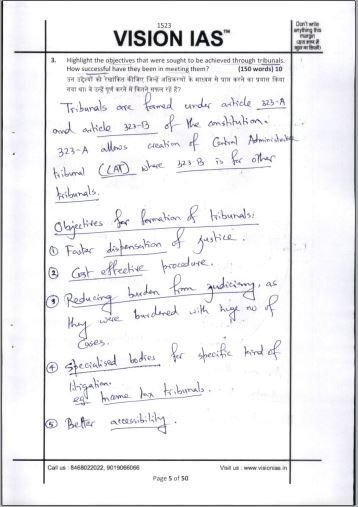 1523
VISION IAS™
Don't write anything this margin
3. Highlight the objectives that were sought to be achieved through tribunals.
How successful have they been in meeting them? (150 words) 10
उन उद्देश्यों को रेखांकित कीजिए जिन्हें अधिकरणों के माध्यम से प्राप्त करने का प्रयास किया
गया था। वे उन्हें पूर्ण करने में कितने सफल रहे हैं?
Tribunals are formed under article 323-A
and article 323-B of the constitution.
323-A allows creation of Central Administrative
tribunal (CAT) where 323-B is for other
tribunals.
Objectives for formation of tribunals:
① Faster dispensation of justice.
② Cost effective procedure.
③ Reducing burden from judiciary, as
they were burdened with huge no of
cases.
④ Specialised bodies for specific kind of
litigation.
eg Income tax tribunals.
⑤ Better accessibility.
Call us : 8468022022, 9019066066 Visit us : www.visionias.in
Page 5 of 50